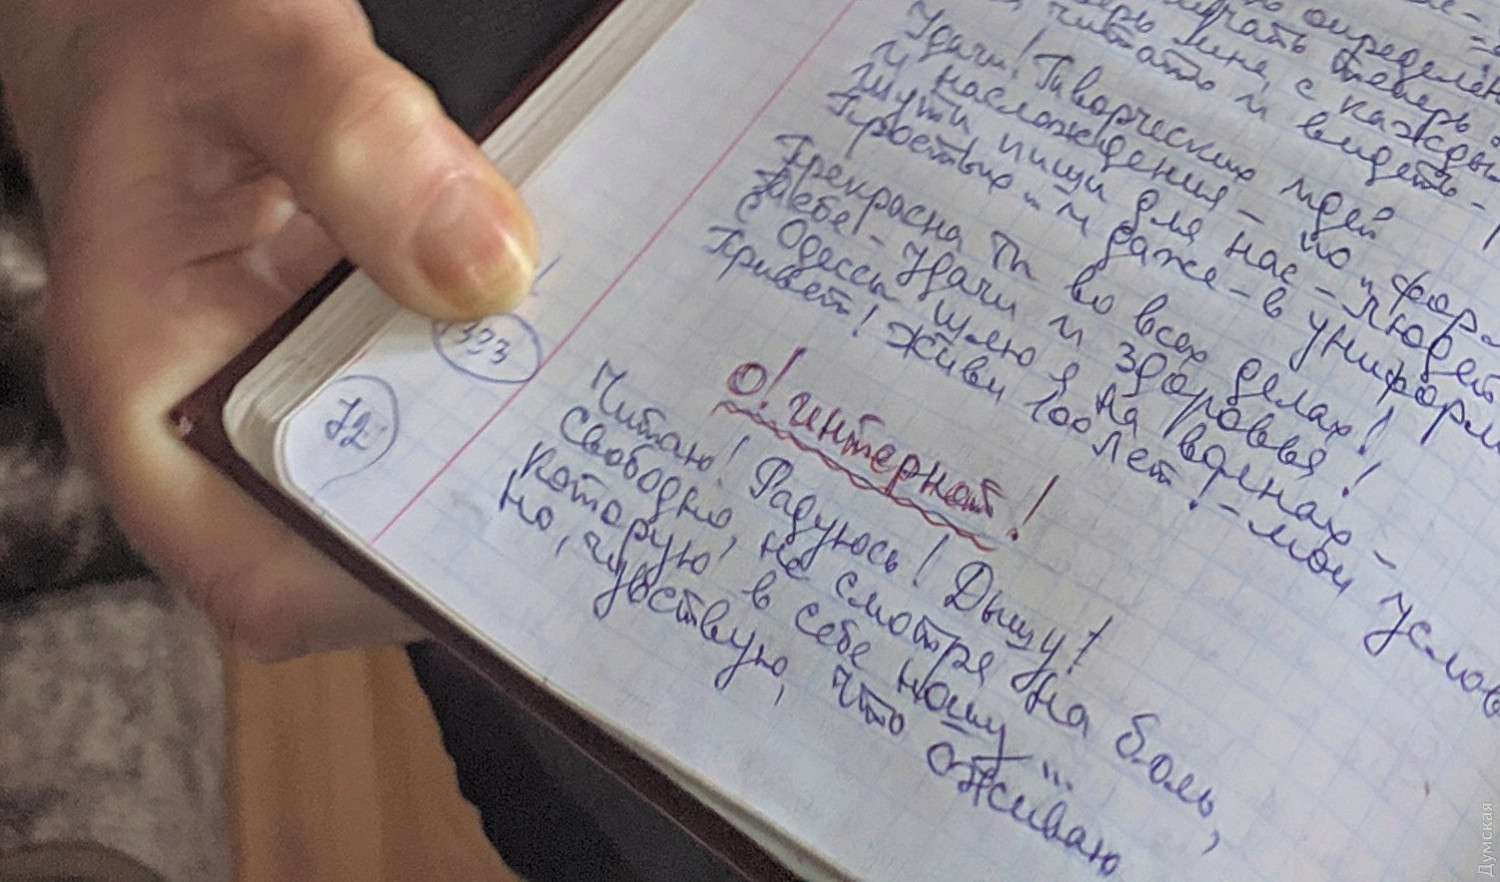 определён
теперь
мне, с кажды
читать и видеть -
Удачи! Творческих идей
И наслаждения - по "фор
Шути пиши для нас - людей
Простых - и даже - в униформ
Прекрасна ты во всех делах!
Тебе - удачи и здоровья!
С Одессы шлю я на волнах -
Привет! Живи 100 лет! - мои услов
333
О! интернат!
72
Читаю! Радуюсь! Дышу!
Свободно, не смотря на боль,
Которую в себе ношу ...
Но, чувствую, что оживаю
Думская